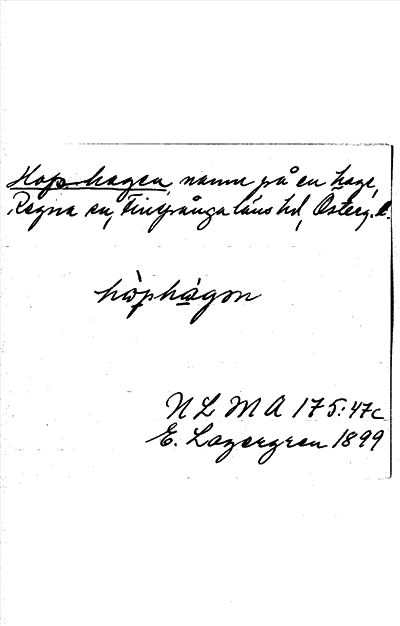 Hop-hagen, namn på en hage,
Regna sn, Finspånga läns hd, Österg. l.
hòphàgən
N L M A 175:47c
E. Lagergren 1899